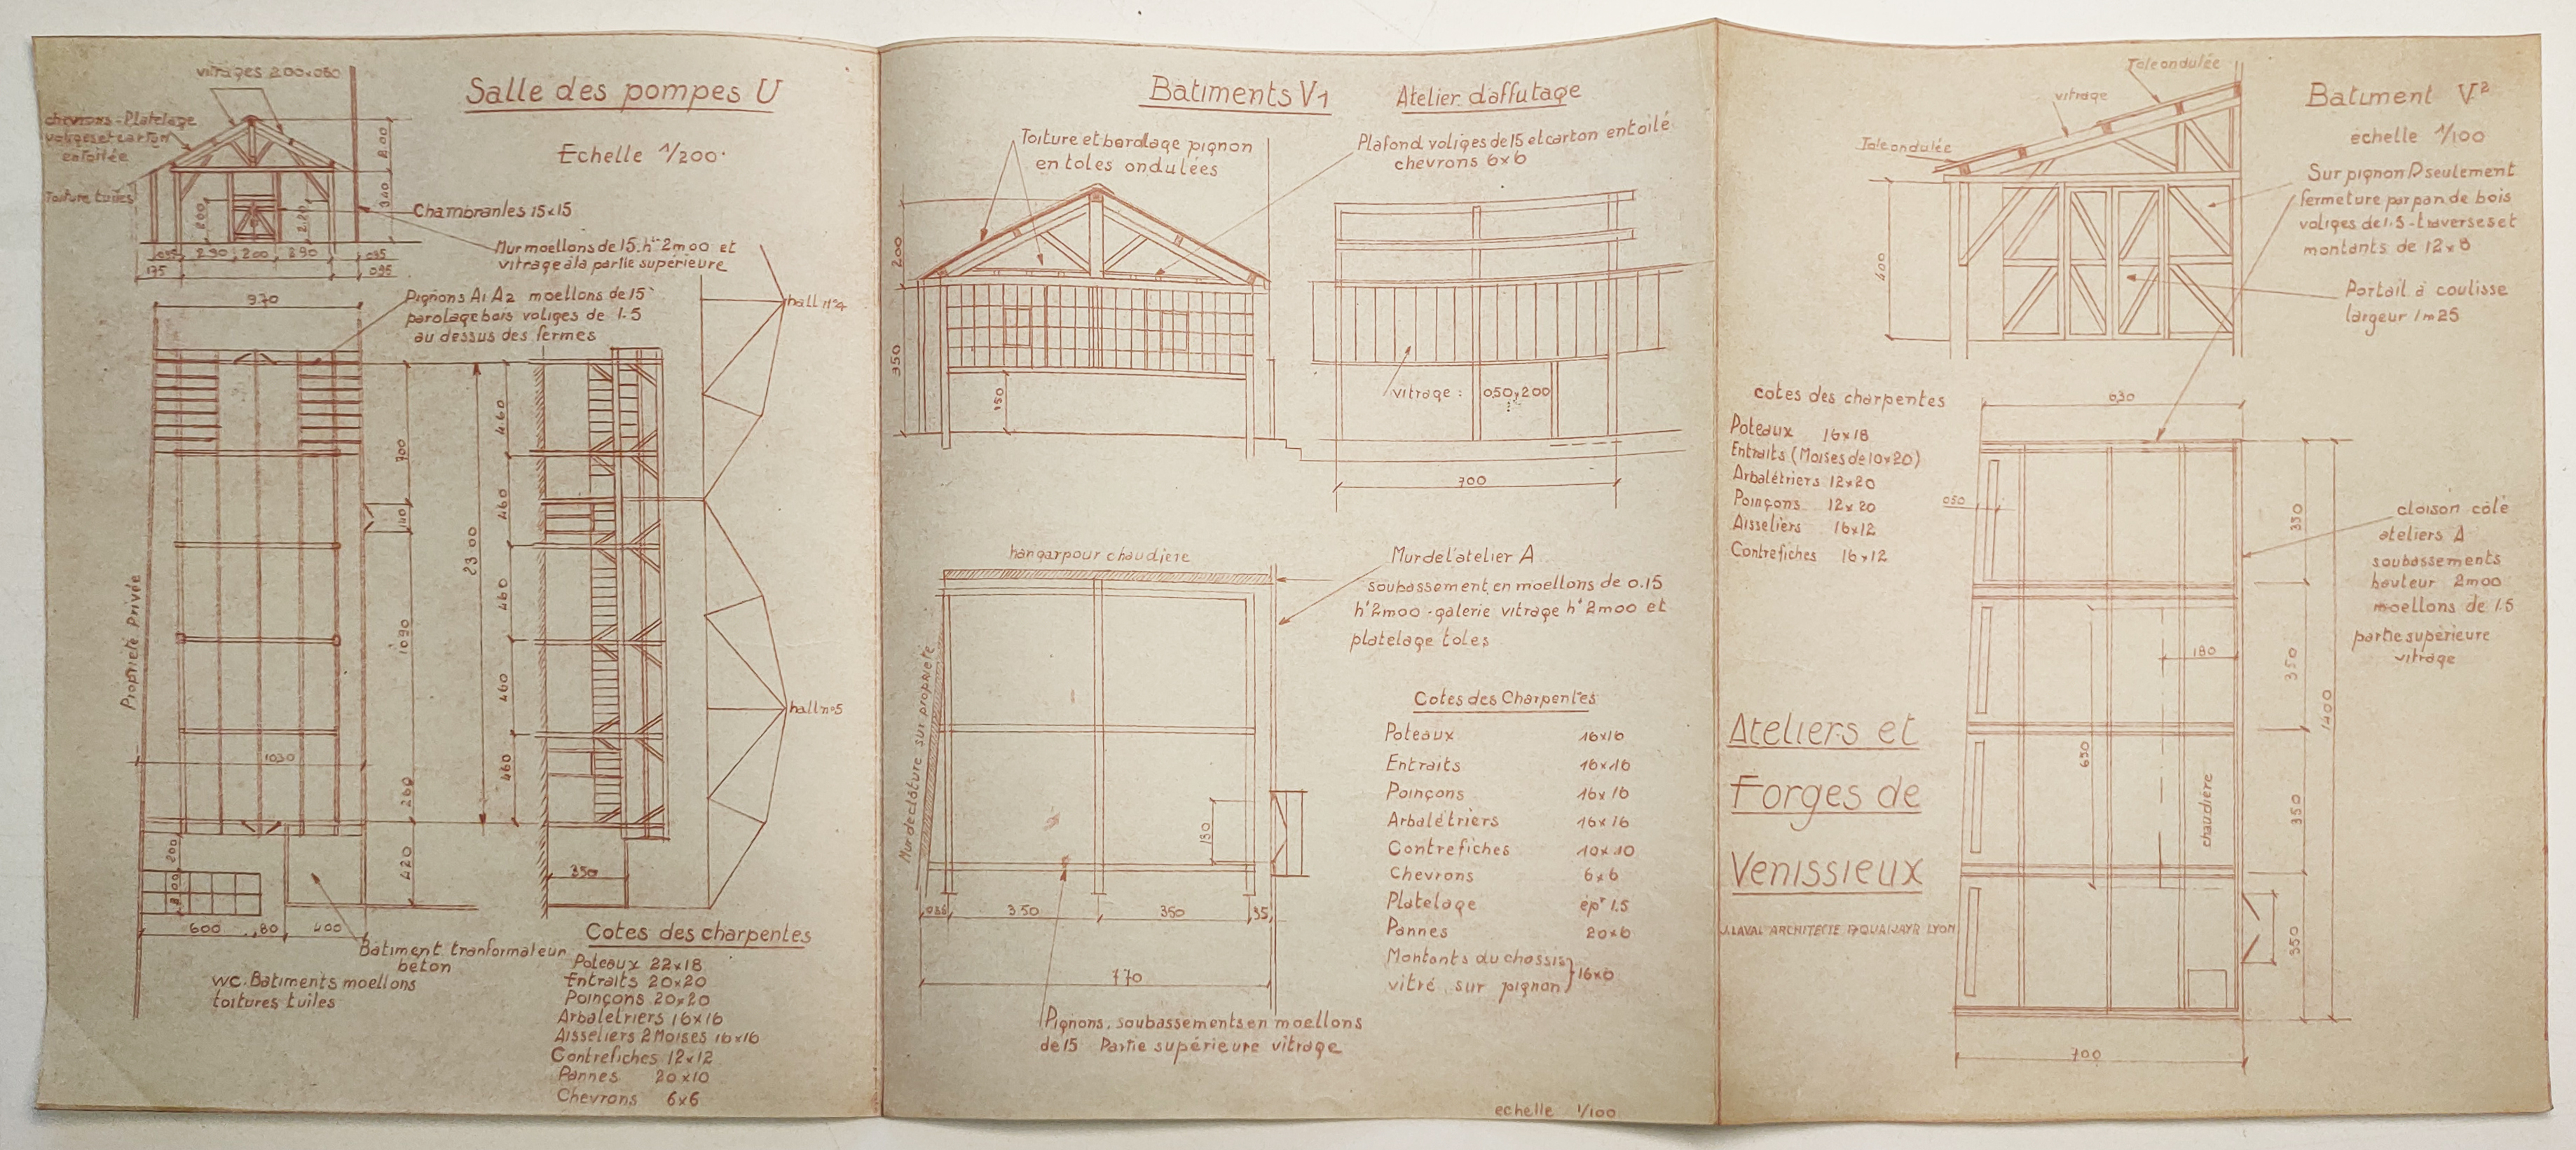 vitrages 200x050
chevrons - Platelage
voliges et carton
entoilée
Toiture tuiles
Salle des pompes U
Echelle 1/200.
200
340
200
220
Chambranles 15x15
Mur moellons de 15. ht 2m00 et
vitrage à la partie supérieure
095 290 200 290 095
175 095
970
Pignons A1 A2 moellons de 15
parolage bois voliges de 1.5
au dessus des fermes
hall n°4
700
140
1090
260
420
2300
460
460
460
460
460
Propriété Privée
1030
hall n°5
200
200
350
600 80 400
Batiment tranformateur
beton
wc. Batiments moellons
toitures tuiles
Cotes des charpentes
Poteaux 22x18
Entraits 20x20
Poinçons 20x20
Arbaletriers 16x16
Aisseliers 2 Moises 16x16
Contrefiches 12x12
Pannes 20x10
Chevrons 6x6
Batiments V1 Atelier d'affutage
Toiture et bardage pignon
en toles ondulées
Plafond voliges de 15 et carton entoilé
chevrons 6x6
200
350
150
vitrage : 050,200
700
hangar pour chaudiere
Mur de l'atelier A
soubassement en moellons de 0.15
ht 2m00 - galerie vitrage ht 2m00 et
platelage toles
Mur de clôture sur propriete
130
350 350 35
770
Pignons, soubassements en moellons
de 15 Partie supérieure vitrage
Cotes des Charpentes
Poteaux 16x16
Entraits 16x16
Poinçons 16x16
Arbalétriers 16x16
Contrefiches 10x10
Chevrons 6x6
Platelage épr 1.5
Pannes 20x6
Montants du chassis
vitré sur pignon } 16x6
echelle 1/100
Tole ondulée
vitrage
Tole ondulée
Batiment V2
échelle 1/100
400
Sur pignon D seulement
fermeture par pan de bois
voliges de 1.5 - traverses et
montants de 12x8
Portail à coulisse
largeur 1m25
cotes des charpentes
Poteaux 16x18
Entraits (Moises de 10x20)
Arbalétriers 12x20
Poinçons 12x20
Aisseliers 16x12
Contrefiches 16x12
630
050
350
350
350
350
1400
180
650
chaudiere
cloison côté
ateliers A
soubassements
hauteur 2m00
moellons de 15
partie supérieure
vitrage
700
Ateliers et
Forges de
Venissieux
J. LAVAL ARCHITECTE QUAI JAYR LYON